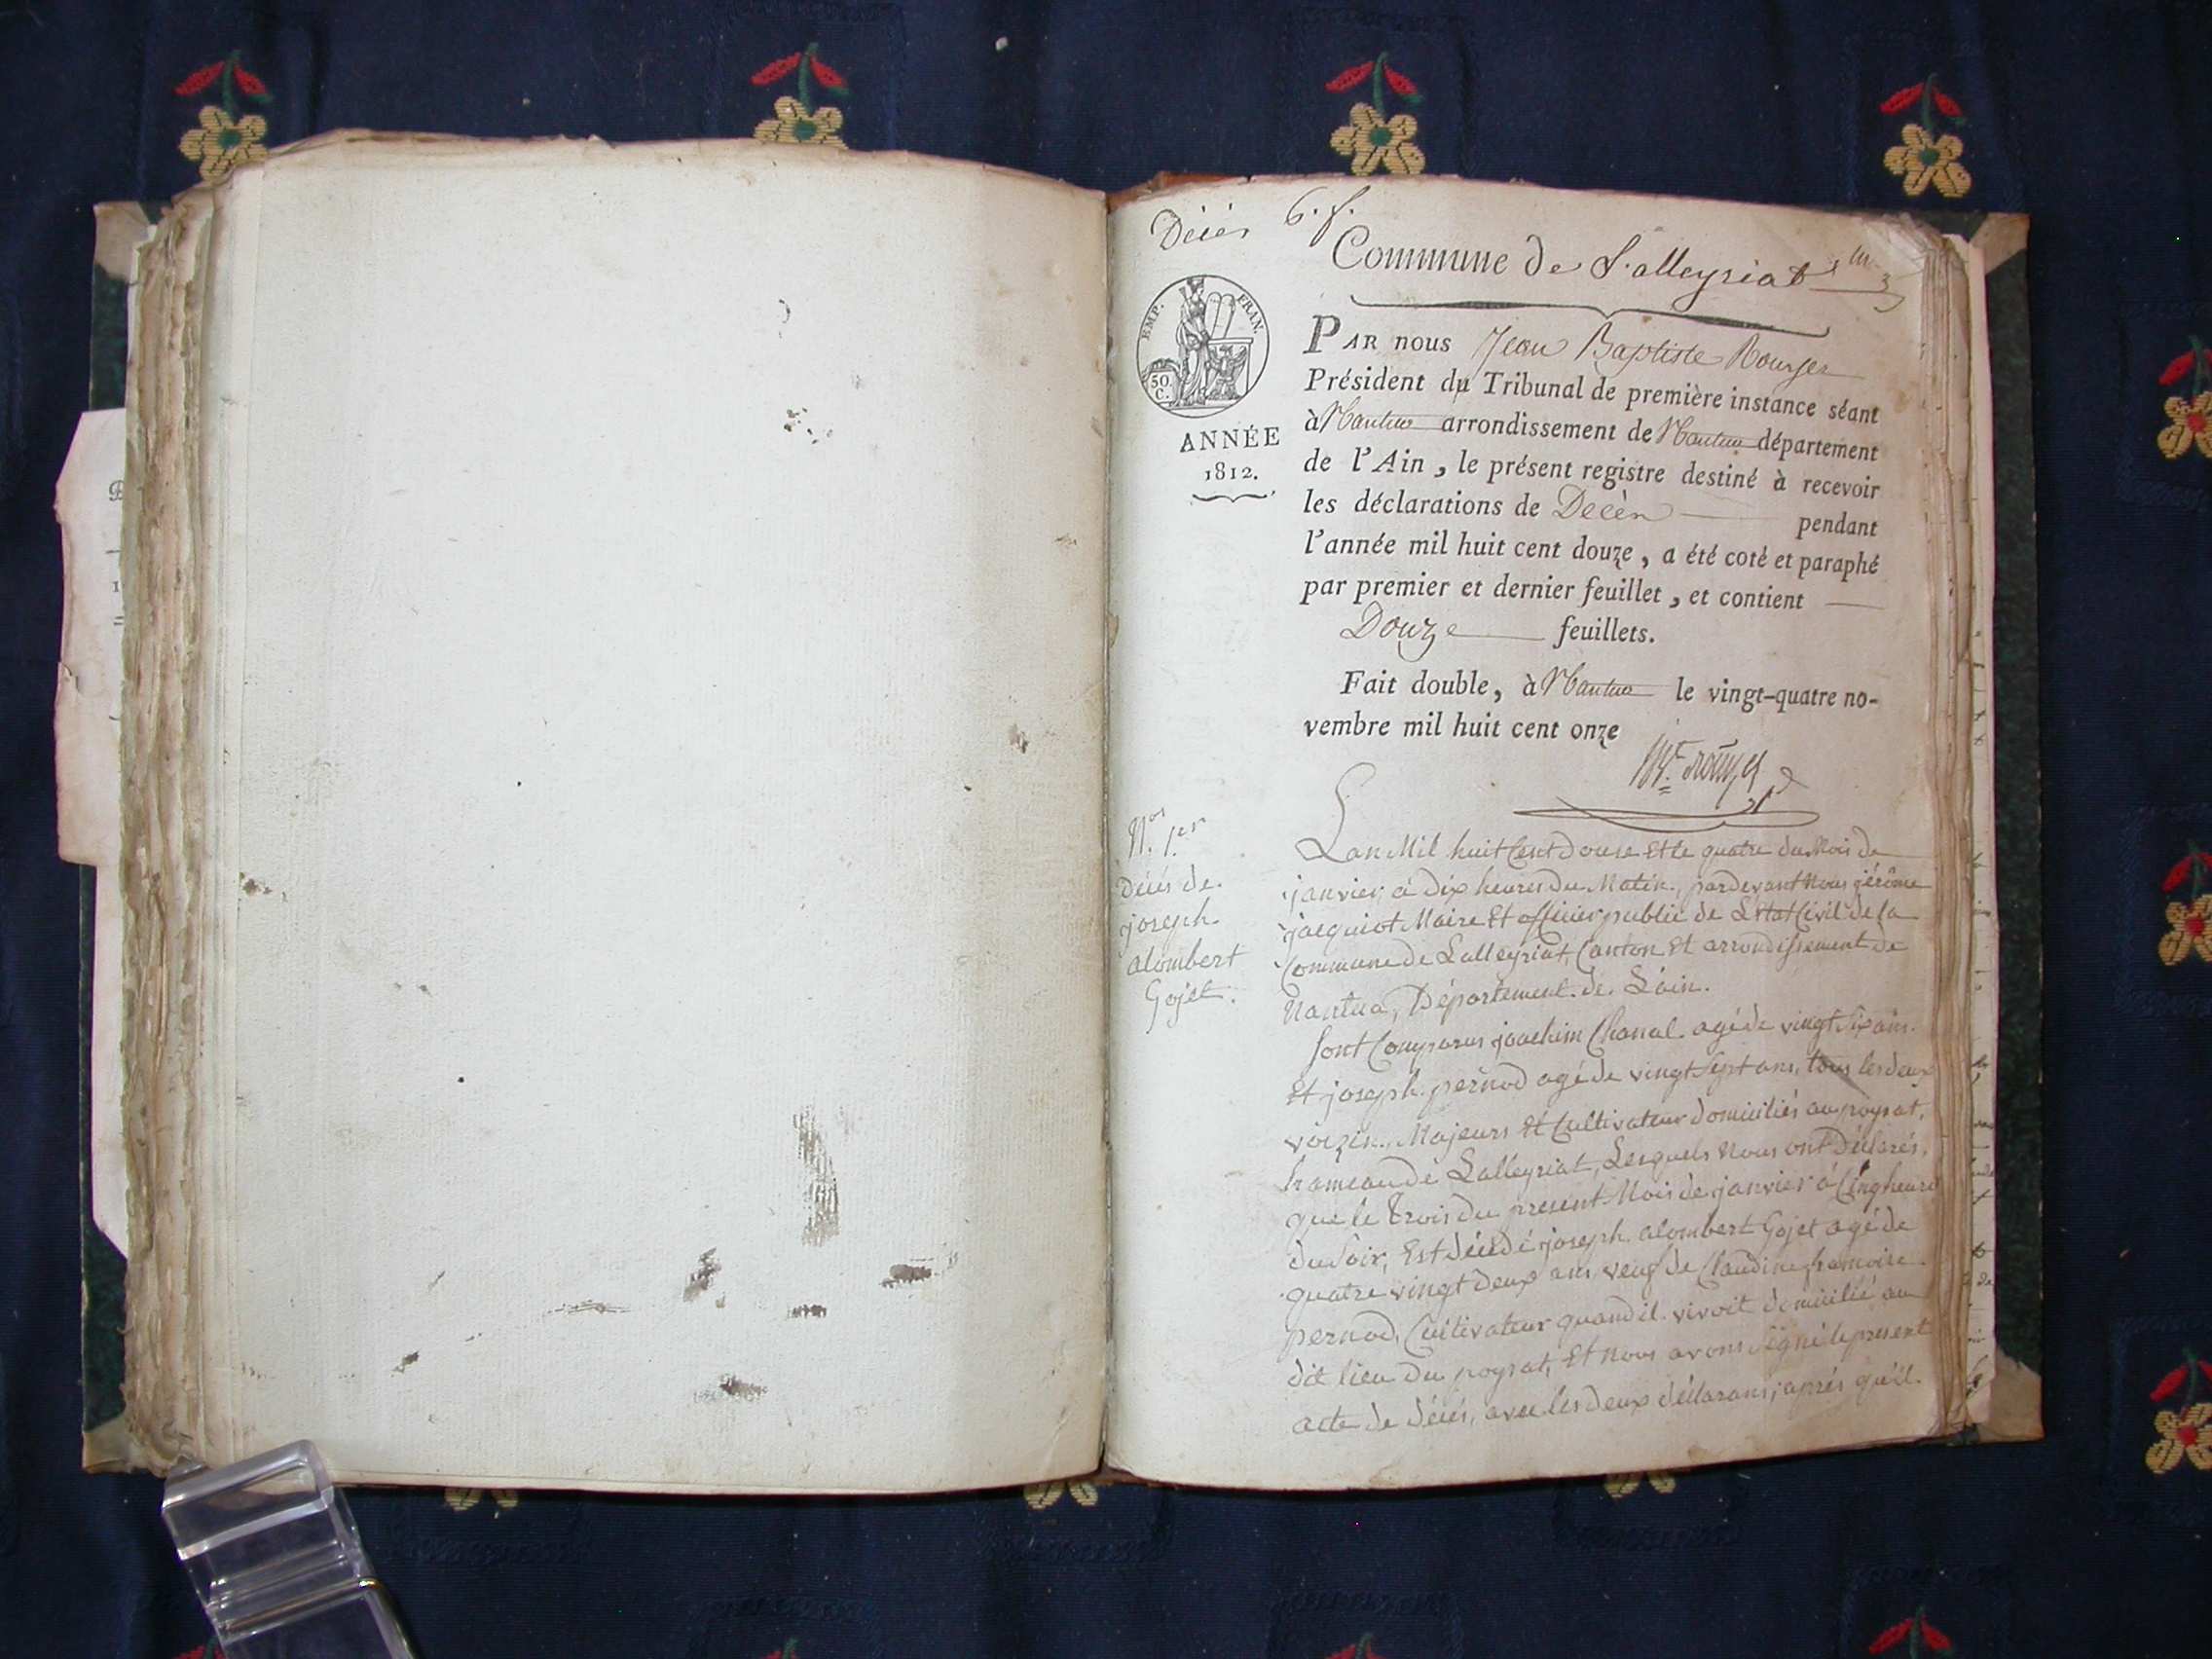 Décès 6. f.
Commune de Lalleyriat
EMP. FRAN.
50 C.
ANNÉE
1812.
PAR nous Jean Baptiste Rouyer
Président du Tribunal de première instance séant
à Nantua arrondissement de Nantua département
de l'Ain, le présent registre destiné à recevoir
les déclarations de Décès pendant
l'année mil huit cent douze, a été coté et paraphé
par premier et dernier feuillet, et contient
Douze feuillets.
Fait double, à Nantua le vingt-quatre no-
vembre mil huit cent onze
N.os 1.er
Décés de.
joseph.
alombert
Gojet.
Lan Mil huit Cent Douse Et le quatre du Mois de
janvier, à dix heures du Matin, pardevant Nous jérôme
jacquiot Maire Et officier public de L'Etat Civil de la
Commune de Lalleyriat, Canton Et arrondissement de
Nantua, Département. de. L'ain.
Sont Comparus joachim Chanal. agé de vingt Six ans.
Et joseph. pernod agé de vingt Sept ans, tous les deux
voizin., Majeurs Et Cultivateur domiciliés au poysat,
hameau de Lalleyriat, Lesquels Nous ont Déclarés,
que le Trois du present Mois de janvier à Cinq heure
du Soir, Est décédé joseph. alombert Gojet agé de
quatre vingt deux ans, veuf de Claudine françoise.
pernod, Cultivateur quand il. vivoit domicilié au
dit lieu du poysat, Et Nous avons Signé le present
acte de décés, avec les deux déclarans, aprés qu'il.